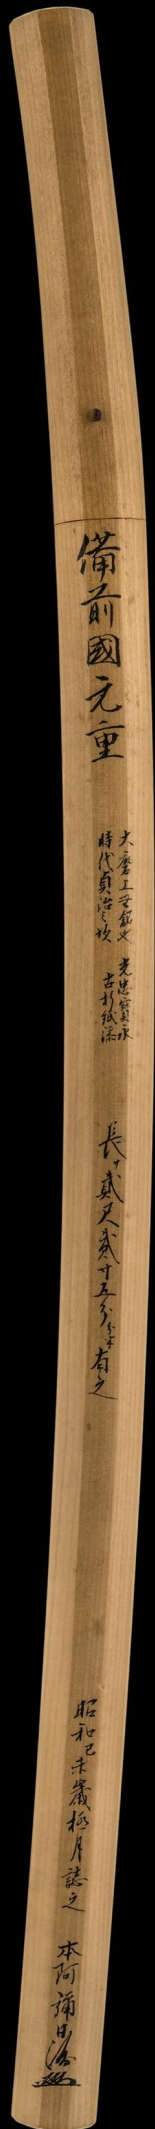 備前國元重
大磨上無銘也 光忠寶永
時代貞治之頃 古折紙添
長サ貳尺貳寸五分半有之
昭和己未歳極月誌之 本阿彌日洲